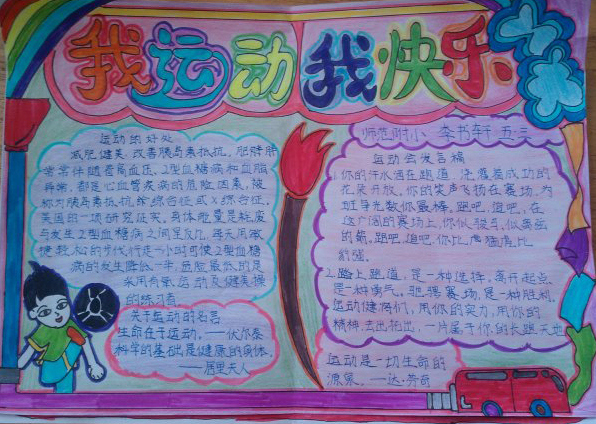 我运动 我快乐
师范附小 李书轩 五三
运动的好处
减肥健美,改善胰岛素抵抗。肥胖者
常常伴随着高血压、2型血糖病和血脂
异常,都是心血管疾病的危险因素,被
称为胰岛素抵抗综合征或X综合征。
美国的一项研究证实,身体能量是耗度
与发生2型血糖病之间呈反比,每天用敏
捷轻松的步伐行走一小时可使2型血糖
病的发生降低一半,危险最低的是
采用有氧运动及健美操
的练习者
关于运动的名言
生命在于运动。——伏尔泰
科学的基础是健康的身体。
——居里夫人
运动会发言稿
1.你的汗水洒在跑道,浇灌着成功的
花朵开放。你的笑声飞扬在赛场,为
班争光数你最棒。跑吧,追吧,在
这广阔的赛场上,你似骏马,似离弦
的箭。跑吧,追吧,你比虎猛,比
豹强。
2.踏上跑道,是一种选择。离开起点,
是一种勇气。驰骋赛场,是一种胜利。
运动健将们,用你的实力,用你的
精神,去出拓出,一片属于你的长跑天地
运动是一切生命的
源泉。——达·芬奇